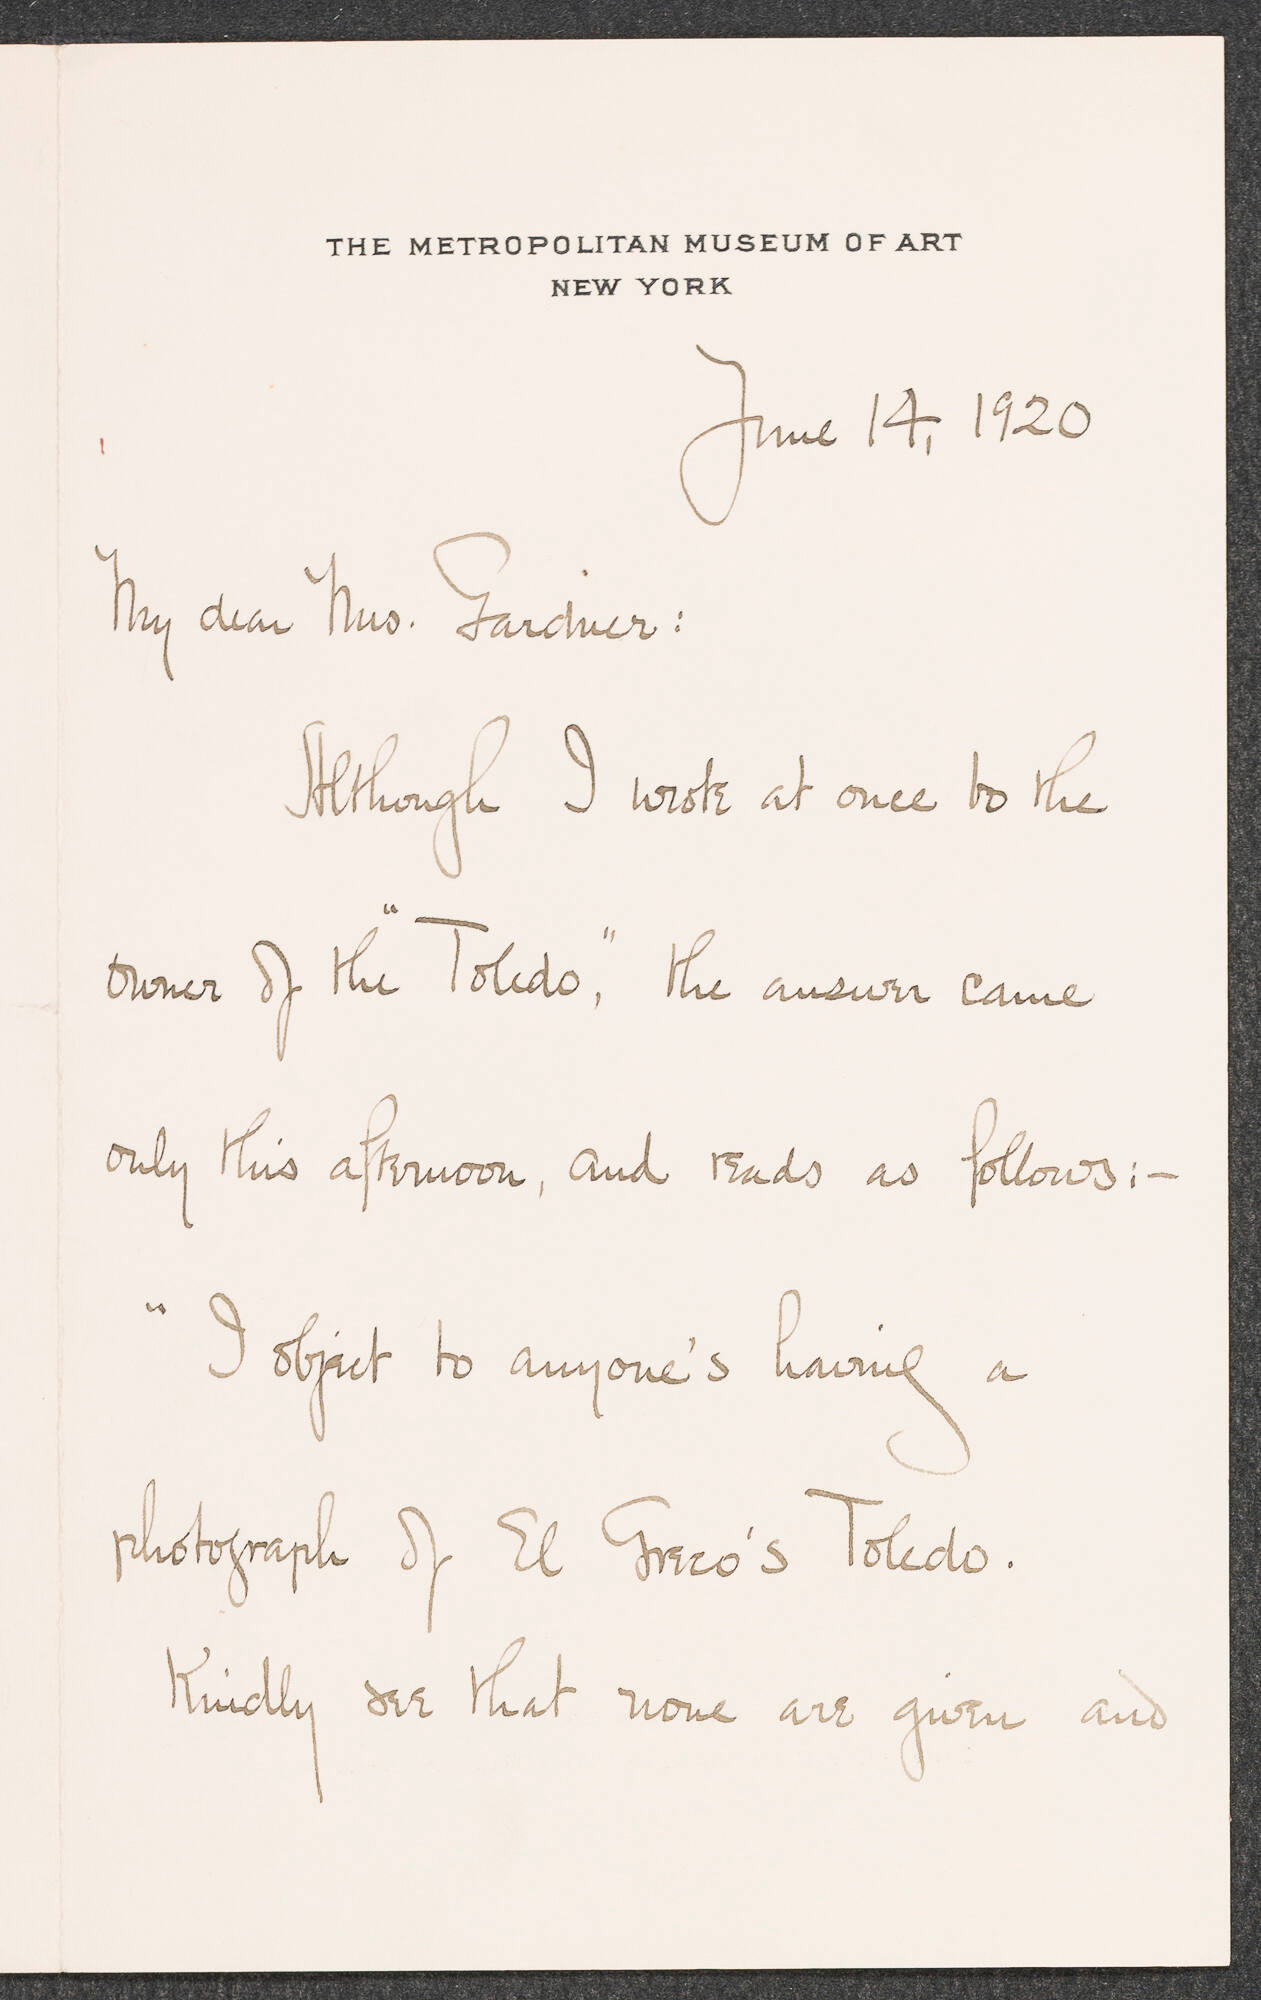 THE METROPOLITAN MUSEUM OF ART
NEW YORK
June 14, 1920
My dear Mrs. Gardner:
Although I wrote at once to the
owner of the "Toledo," the answer came
only this afternoon, and reads as follows:—
"I object to anyone's having a
photograph of El Greco's Toledo.
Kindly see that none are given and